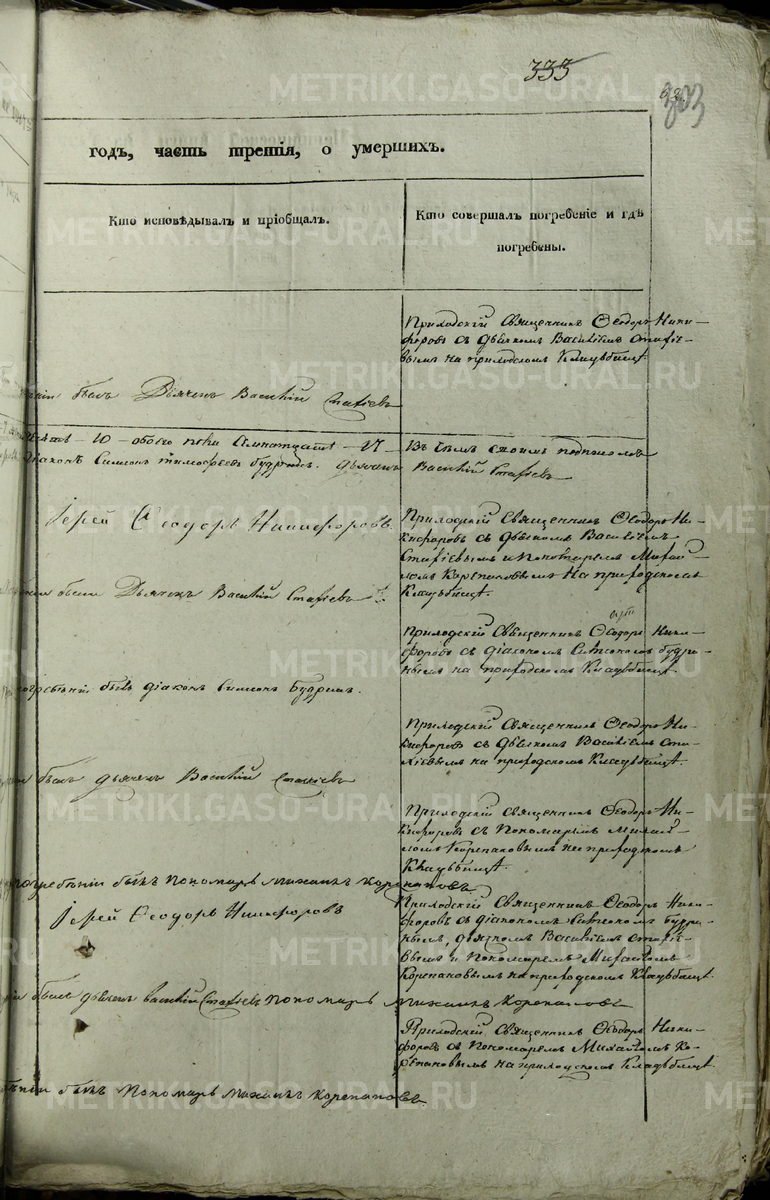 333
303
годъ, часть третія, о умершихъ.
Кто исповѣдывалъ и пріобщалъ.
Кто совершалъ погребеніе и гдѣ
погребены.
Приходскій Священникъ Ѳеодоръ Ники-
форовъ съ дьячкомъ Васиіемъ Стахіе-
вымъ на приходскомъ Кладбищѣ
былъ Дьячекъ Василій Стахіевъ
10 - обоего пола - 17 -
Діаконъ Симеонъ Тимофеевъ Будринъ. Дьячекъ
Въ семъ своимъ подписомъ
Василій Стахіевъ
Іерей Ѳеодоръ Никифоровъ
Приходскій Священникъ Ѳеодоръ Ни-
кифоровъ съ дьячкомъ Василіемъ
Стахіевымъ и Пономаремъ Михай-
ломъ Корепановымъ на приходскомъ
Кладбищѣ.
были Дьячекъ Василій Стахіевъ
Приходскій Священникъ Ѳеодоръ Ники-
форовъ съ діакономъ Симеономъ Будри-
нымъ на приходскомъ Кладбищѣ.
погребеніи былъ діаконъ Симеонъ Будринъ.
Приходскій Священникъ Ѳеодоръ Ни-
кифоровъ съ дьячкомъ Василіемъ Ста-
хіевымъ на приходскомъ Кладбищѣ
былъ дьячекъ Василій Стахіевъ
Приходскій Священникъ Ѳеодоръ Ни-
кифоровъ съ Пономаремъ Михай-
ломъ Корепановымъ на приходскомъ
Кладбищѣ.
погребеніи былъ пономарь Михаилъ Корепановъ
Іерей Ѳеодоръ Никифоровъ
Приходскій Священникъ Ѳеодоръ Ники-
форовъ съ діакономъ Симеономъ Будри-
нымъ, дьячкомъ Василіемъ Стахіе-
вымъ и Пономаремъ Михайломъ
Корепановымъ на приходскомъ Кладбищѣ
были дьячекъ Василій Стахіевъ пономарь Михаилъ Корепановъ
Приходскій Священникъ Ѳеодоръ Ники-
форовъ съ Пономаремъ Михайломъ Ко-
репановымъ на приходскомъ Кладбищѣ.
былъ пономарь Михаилъ Корепановъ
METRIKI.GASO-URAL.RU